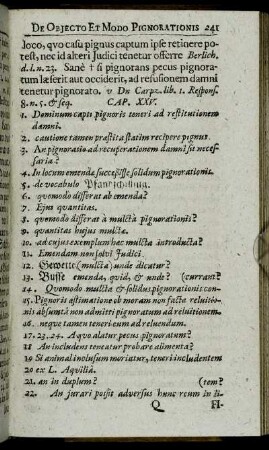 DE OBJECTO ET MODO PIGNORATIONIS 241
loco, quo casu pignus captum ipse retinere po-
test, nec id alteri Judici tenetur offerre Berlich.
d. l. n. 23. Sanè † si pignorans pecus pignora-
tum læserit aut occiderit, ad refusionem damni
tenetur pignorato. v Dn Carpz. lib. 1. Respons.
8. n. 5. & seq. CAP. XXV.
1. Dominum capti pignoris teneri ad restitutionem
damni.
2. cautione tamen præstita statim recipere pignus.
3. An pignoratio ad recuperationem damni sit neces-
saria?
4. In locum emendæ successisse solidum pignorationis.
5. de vocabulo Pfandschilling.
6. quomodo differat ab emenda?
7. Ejus quantitas.
8. quomodo differat à mulcta pignorationis?
9. quantitas hujus mulctæ.
10. ad cujus exemplum hæc mulcta introducta?
11. Emendam non solvi Judici.
12. Gewette (mulcta) unde dicatur?
13. Busse emenda, quid, & unde? (currant?
14. Quomodo mulcta & solidus pignorationis con-
15. Pignoris æstimatione ob moram non factæ reluitio-
nis absumtâ non admitti pignoratum ad reluitionem.
16. neque tamen teneri eum ad reluendum.
17. 23. 24. A quo alatur pecus pignoratum?
18 An includens teneatur probare alimenta?
19 Si animal inclusum moriatur, teneri includentem
20 ex L. Aquilia.
21. an in duplum? (tem?
22. An jurari possit adversus hunc reum in li-
Q FI-